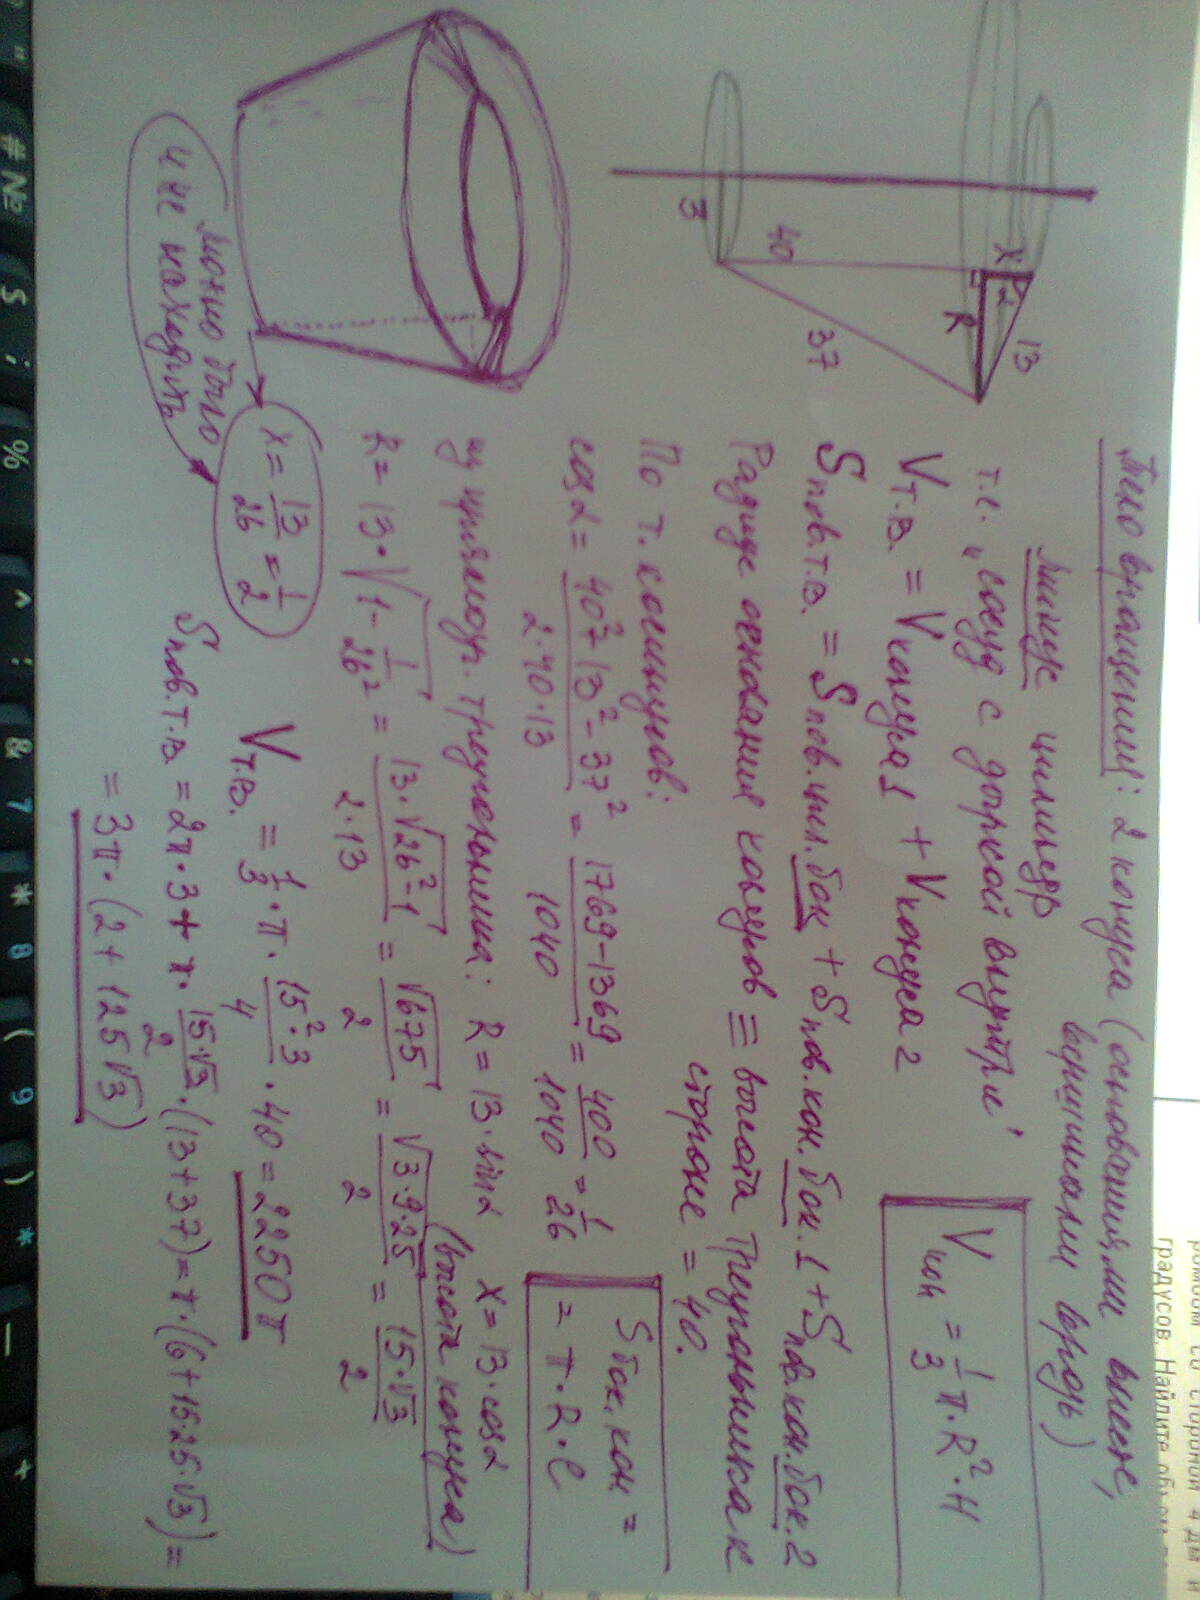 Тело вращения: 2 конуса (основаниями вместе,
вершинами врозь)
минус цилиндр
т.е. „сосуд с дыркой внутри"
Vт.в. = Vконуса1 + Vконуса2
Vкон = 1/3 π·R²·H
Sпов.т.в. = Sпов.цил.бок + Sпов.кон.бок.1 + Sпов.кон.бок.2
Радиус основания конусов ≡ высота треугольника к
стороне = 40.
По т. косинусов:
cosα = (40²+13²-37²)/(2·40·13) = (1769-1369)/1040 = 400/1040 = 1/26
Sбок.кон =
= π·R·l
из прямоуг. треугольника: R = 13·sinα x = 13·cosα
(высота конуса)
R = 13·√(1-1/26²) = (13·√(26²-1))/(2·13) = √675/2 = √(3·9·25)/2 = (15·√3)/2
x = 13/26 = 1/2
Vт.в. = 1/3·π·(15²·3)/4·40 = 2250π
Sпов.т.в. = 2π·3 + π·(15·√3)/2·(13+37) = π·(6+15·25·√3) =
= 3π·(2+125√3)
можно было
и не находить
3
40
37
x
α
R
13
ромбом со стороной 4 дм и
градусов. Найдите объем
" # № $ ; % ^ : & 7 * 8 ( 9 ) * _ +